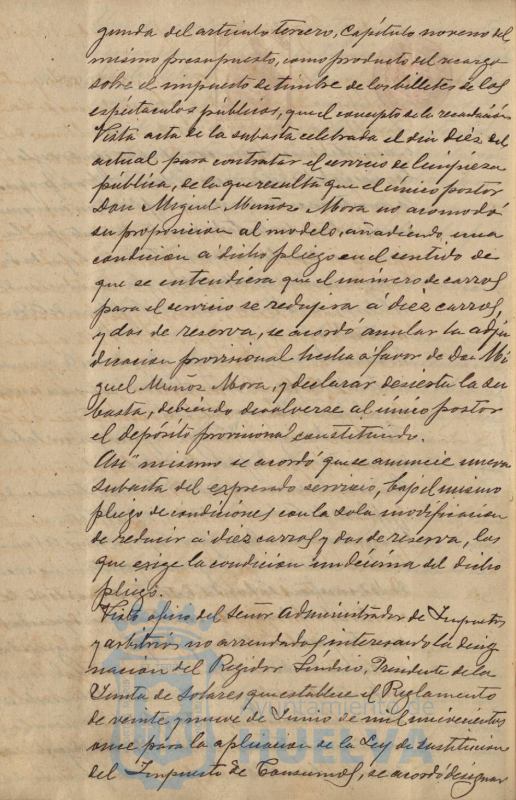 gunda del articulo tercero, Capítulo noveno del
mismo presupuesto, como producto del recargo
sobre el impuesto de timbre de los billetes de los
espectaculos públicos, que el concepto de la recaudación
Vista acta de la subasta celebrada el dia diez del
actual para contratar el servicio de limpieza
pública, de la que resulta que el único postor
Don Miguel Muñoz Mora no acomodó
su proposicion al modelo, añadiendo una
condición á dicho pliego en el sentido de
que se entendiera que el número de carros
para el servicio se redujera á diez carros,
y dos de reserva, se acordó anular la adju
dicacion provisional hecha á favor de Don Mi
guel Muñoz Mora, y declarar desierta la su
basta, debiendo devolverse al único postor
el depósito provisional constituido.
Así mismo se acordó que se anuncie nueva
subasta del expresado servicio, bajo el mismo
pliego de condiciones con la sola modificacion
de reducir á diez carros y dos de reserva, los
que exige la condición undécima del dicho
pliego.
Visto oficio del Señor Administrador de Impuestos
y arbitrios no arrendados interesando la desig
nación del Regidor Síndico, Presidente de la
Junta de Solares que establece el Reglamento
de veinte y nueve de Junio de mil novecientos
once para la aplicacion de la Ley de sustitucion
del Impuesto de Consumos, se acordó designar
Ayuntamiento de
HUELVA